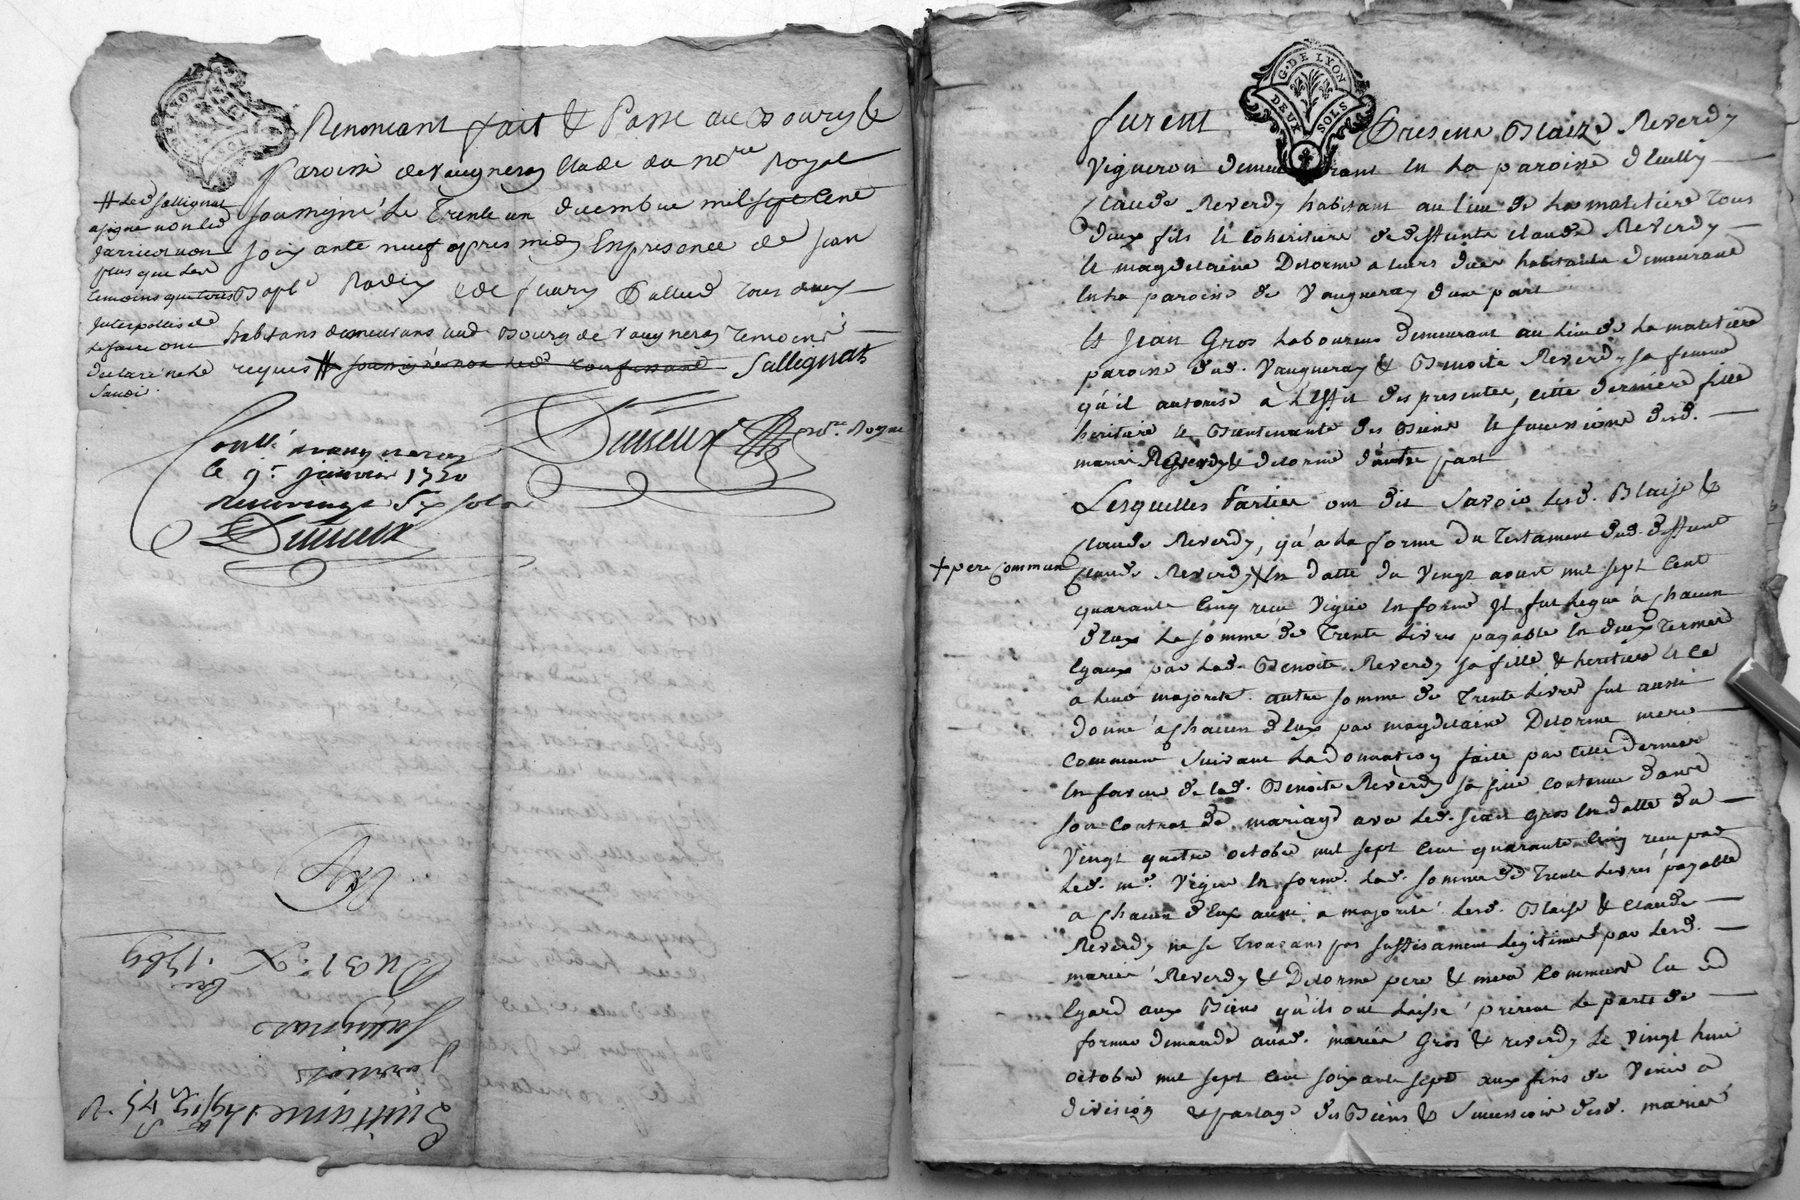 G. DE LYON
Renoncant fait & Passé au Bourg &
Paroisse de Vaugneray Etude du No.re Royal
soussigné Le Trente un decembre mil sept Cent
soixante neuf apres midy En presence de Jean
Bapt.e Rodey & de fleury tous deux
habitans demeurans aud Bourg de Vaugneray Temoins
requis # soussigné non led confessant Sallignat
# Led Sallignat
a signé non led
Jarricot non
plus que les
temoins
de ce faire ont
declaré ne le
savoir
No.re Royal
Conttlé à vaugneray
le 9.e janvier 1770
Du 31. X.
bre 1769
Quittance
Jarricot
Sallignat
G. DE LYON
DEUX SOLS
furent Presens Blaize Reverdy
Vigneron demeurant En La paroisse d'
Claude Reverdy habitant au Lieu de La maletiere Tous
deux fils & coheritiers de deffunts claude Reverdy
& magdelaine Delorme a leurs deces habitants demeurant
En La paroisse de Vaugneray d'une part
Et Jean Gros Laboureur demeurant au Lieu de La maletiere
paroisse dud. Vaugneray & Benoite Reverdy sa femme
qu'il autorise a L'Effet des presentes, cette derniere fille
heritiere & Bientenante des Biens & successions desd.
mariés Reverdy & delorme d'autre part
Lesquelles Parties ont dit Savoir Lesd. Blaise &
Claude Reverdy, qu'a La forme du Testament dud. deffunt
+ pere Commun
Claude Reverdy + En datte du Vingt aoust mil sept Cent
quarante Cinq recu Vigier En forme Il fut Legué à Chacun
d'Eux La somme de Trente Livres payable En deux Termes
Egaux par Lad. Benoite Reverdy sa fille & heritiere & Ce
a leur majorité. autre somme de Trente Livres fut aussi
donné à Chacun d'Eux par magdelaine Delorme mere
Commune Suivant La donnation faite par Cette derniere
En faveur de lad. Benoite Reverdy sa fille contenue dans
son Contrat de mariage avec Led. Jean Gros En datte du
Vingt quatre octobre mil sept Cent quarante Cinq recu par
Led. m.e Vigier En forme. Lad. somme de Trente Livres payable
a Chacun d'Eux aussi a majorité. Lesd. Blaise & Claude
Reverdy ne se Trouvans pas suffisament Legitimes par Lesd.
mariés Reverdy & Delorme pere & mere Communs Eu
Egard aux Biens qu'ils ont Laissé prirent Le parti de
former demande auxd. mariés Gros & reverdy Le Vingt huit
octobre mil sept Cent soixante sept aux fins de Venir a
division & partage des Biens & Succession desd. mariés